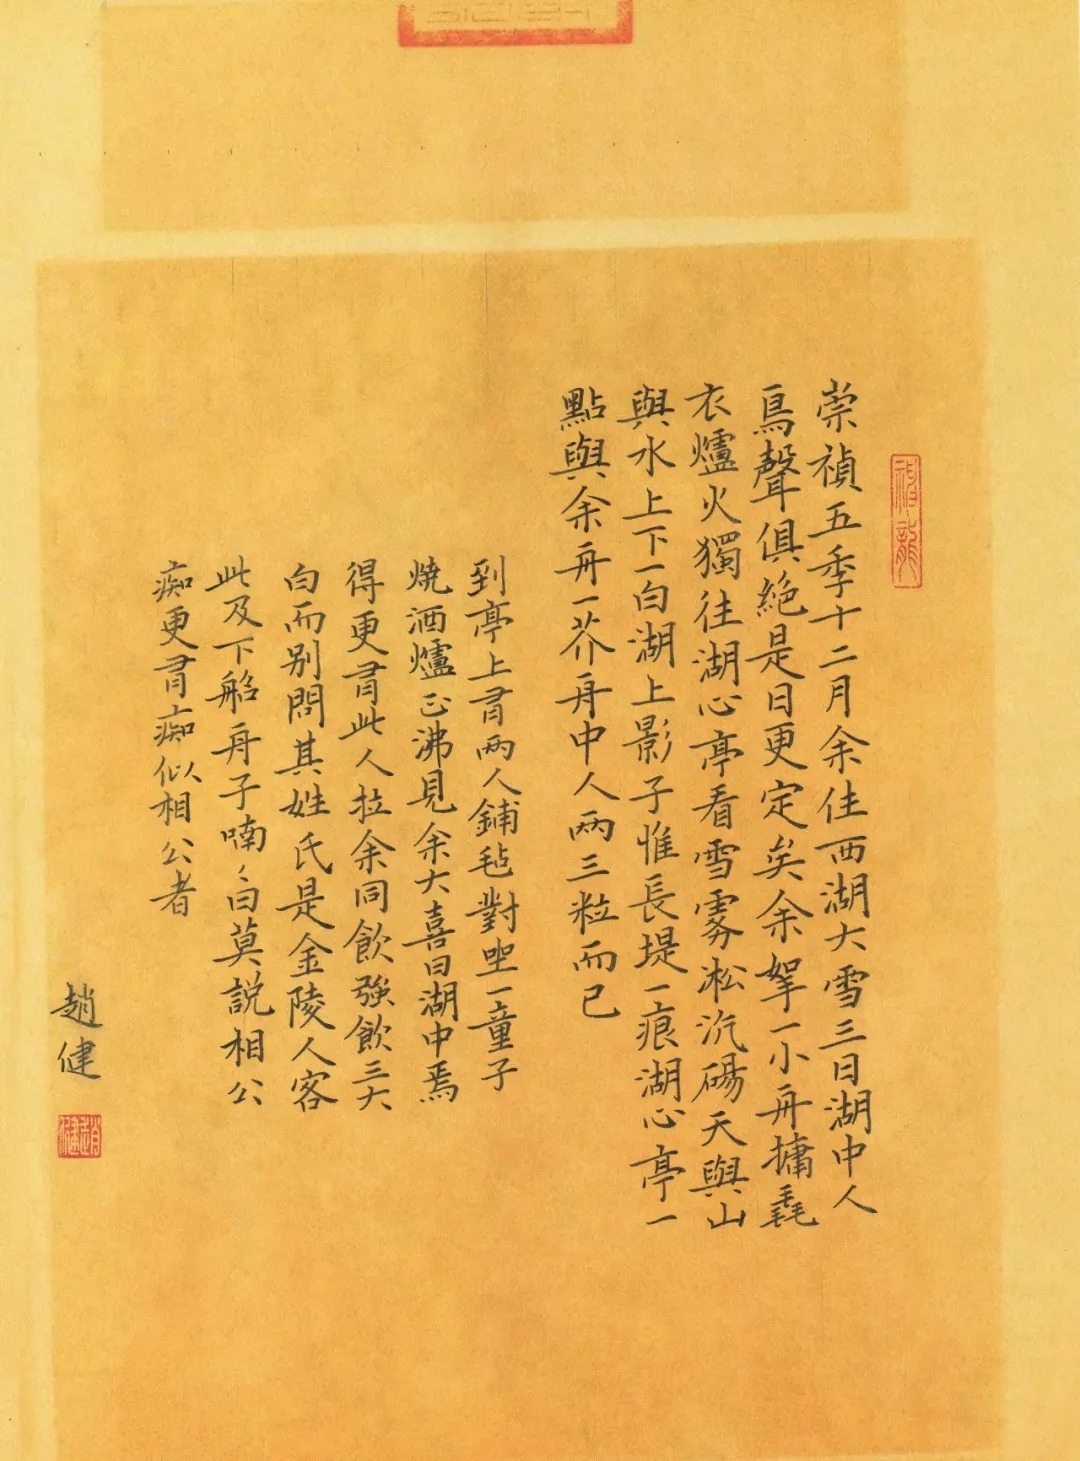 崇禎五季十二月余住西湖大雪三日湖中人
鳥聲俱絕是日更定矣余拏一小舟擁毳
衣爐火獨往湖心亭看雪雾凇沆碭天與山
與水上下一白湖上影子惟長堤一痕湖心亭一
點與余舟一芥舟中人兩三粒而已
到亭上有兩人鋪毡對坐一童子
燒酒爐正沸見余大喜曰湖中焉
得更有此人拉余同飲強飲三大
白而别問其姓氏是金陵人客
此及下船舟子喃〻曰莫説相公
痴更有痴似相公者
趙健
趙健